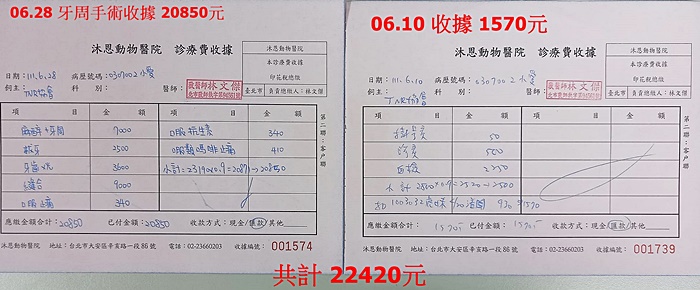 06.28 牙周手術收據 20850元
沐恩動物醫院 診療費收據
沐恩動物醫院
本診療費收據
印花稅總繳
臺北市 負責總繳人：林文傑
日期：111.6.28 病歷號碼：0307002小愛
飼主：TNR協會 科別： 醫師：
獸醫師林文傑
項目 金額 項目 金額
麻醉+牙周 7000 口服抗生素 340
拔牙 2500 口服類嗎啡止痛 410
3600
縫合 9000
口服止痛 340
應繳金額合計：20850 已付金額：20850 收款方式：現金/匯款/其他
沐恩動物醫院 地址：台北市大安區辛亥路一段86號 電話：02-23660203 收據編號：001574
第二聯：補充聯
06.10 收據 1570元
沐恩動物醫院 診療費收據
沐恩動物醫院
本診療費收據
印花稅總繳
臺北市 負責總繳人：林文傑
日期：111.6.10 病歷號碼：0307002小愛
飼主：TNR協會 科別： 醫師：
獸醫師林文傑
項目 金額 項目 金額
掛號費 50
診費 500
血檢 2250
應繳金額合計：1570 已付金額：1570 收款方式：現金/匯款/其他
沐恩動物醫院 地址：台北市大安區辛亥路一段86號 電話：02-23660203 收據編號：001739
共計 22420元